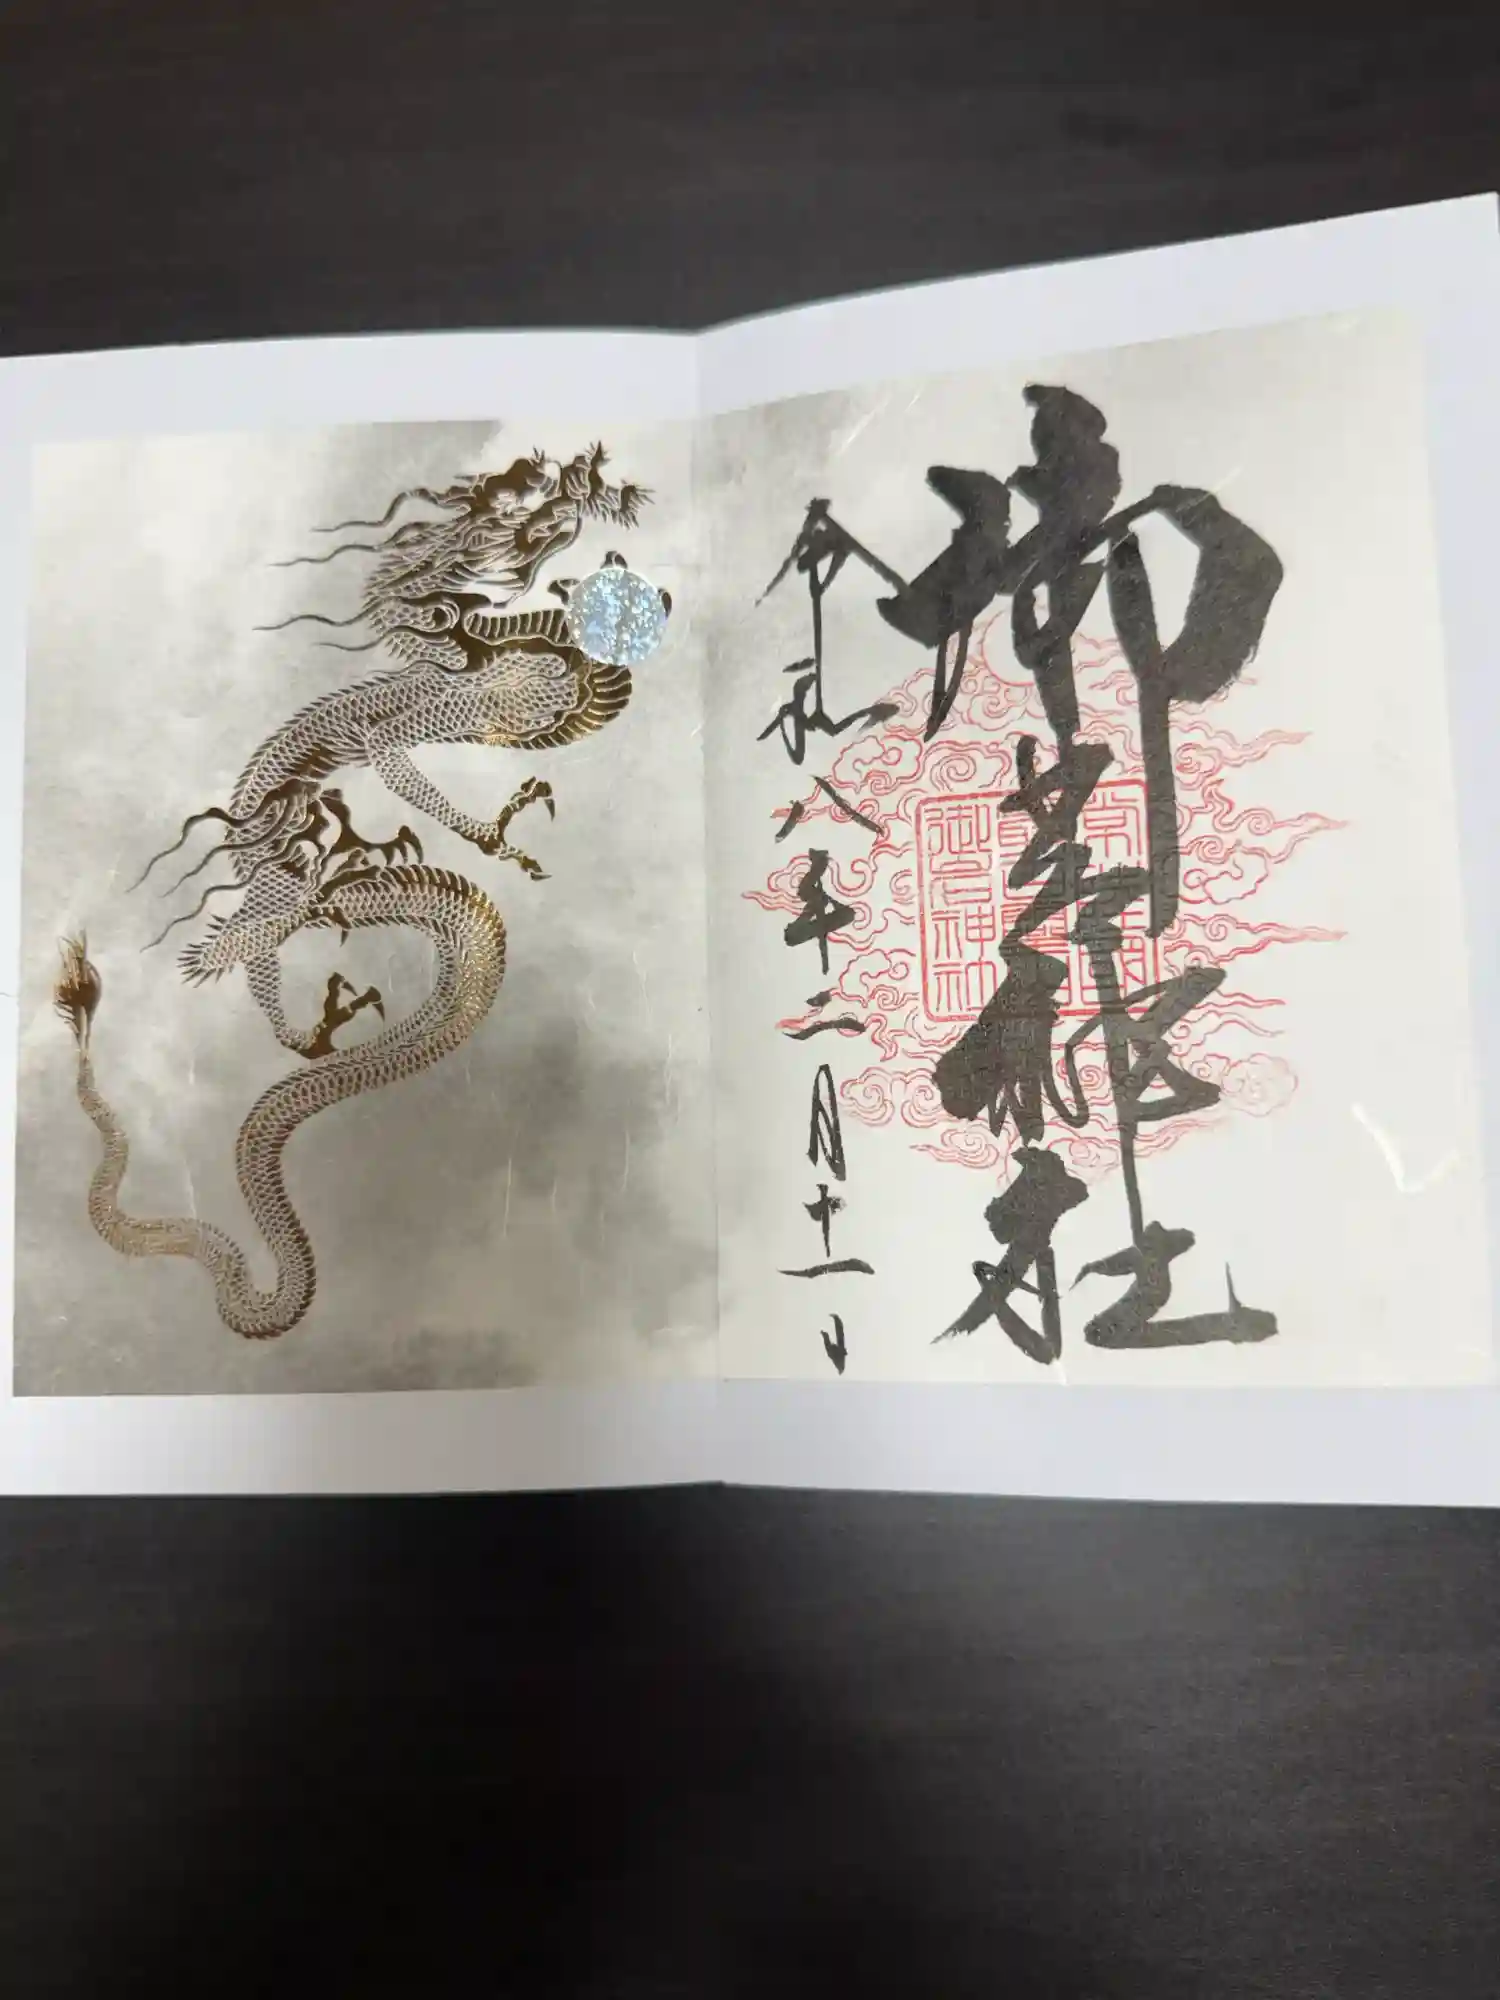 御岩神社
令和八年二月十一日
御岩神社